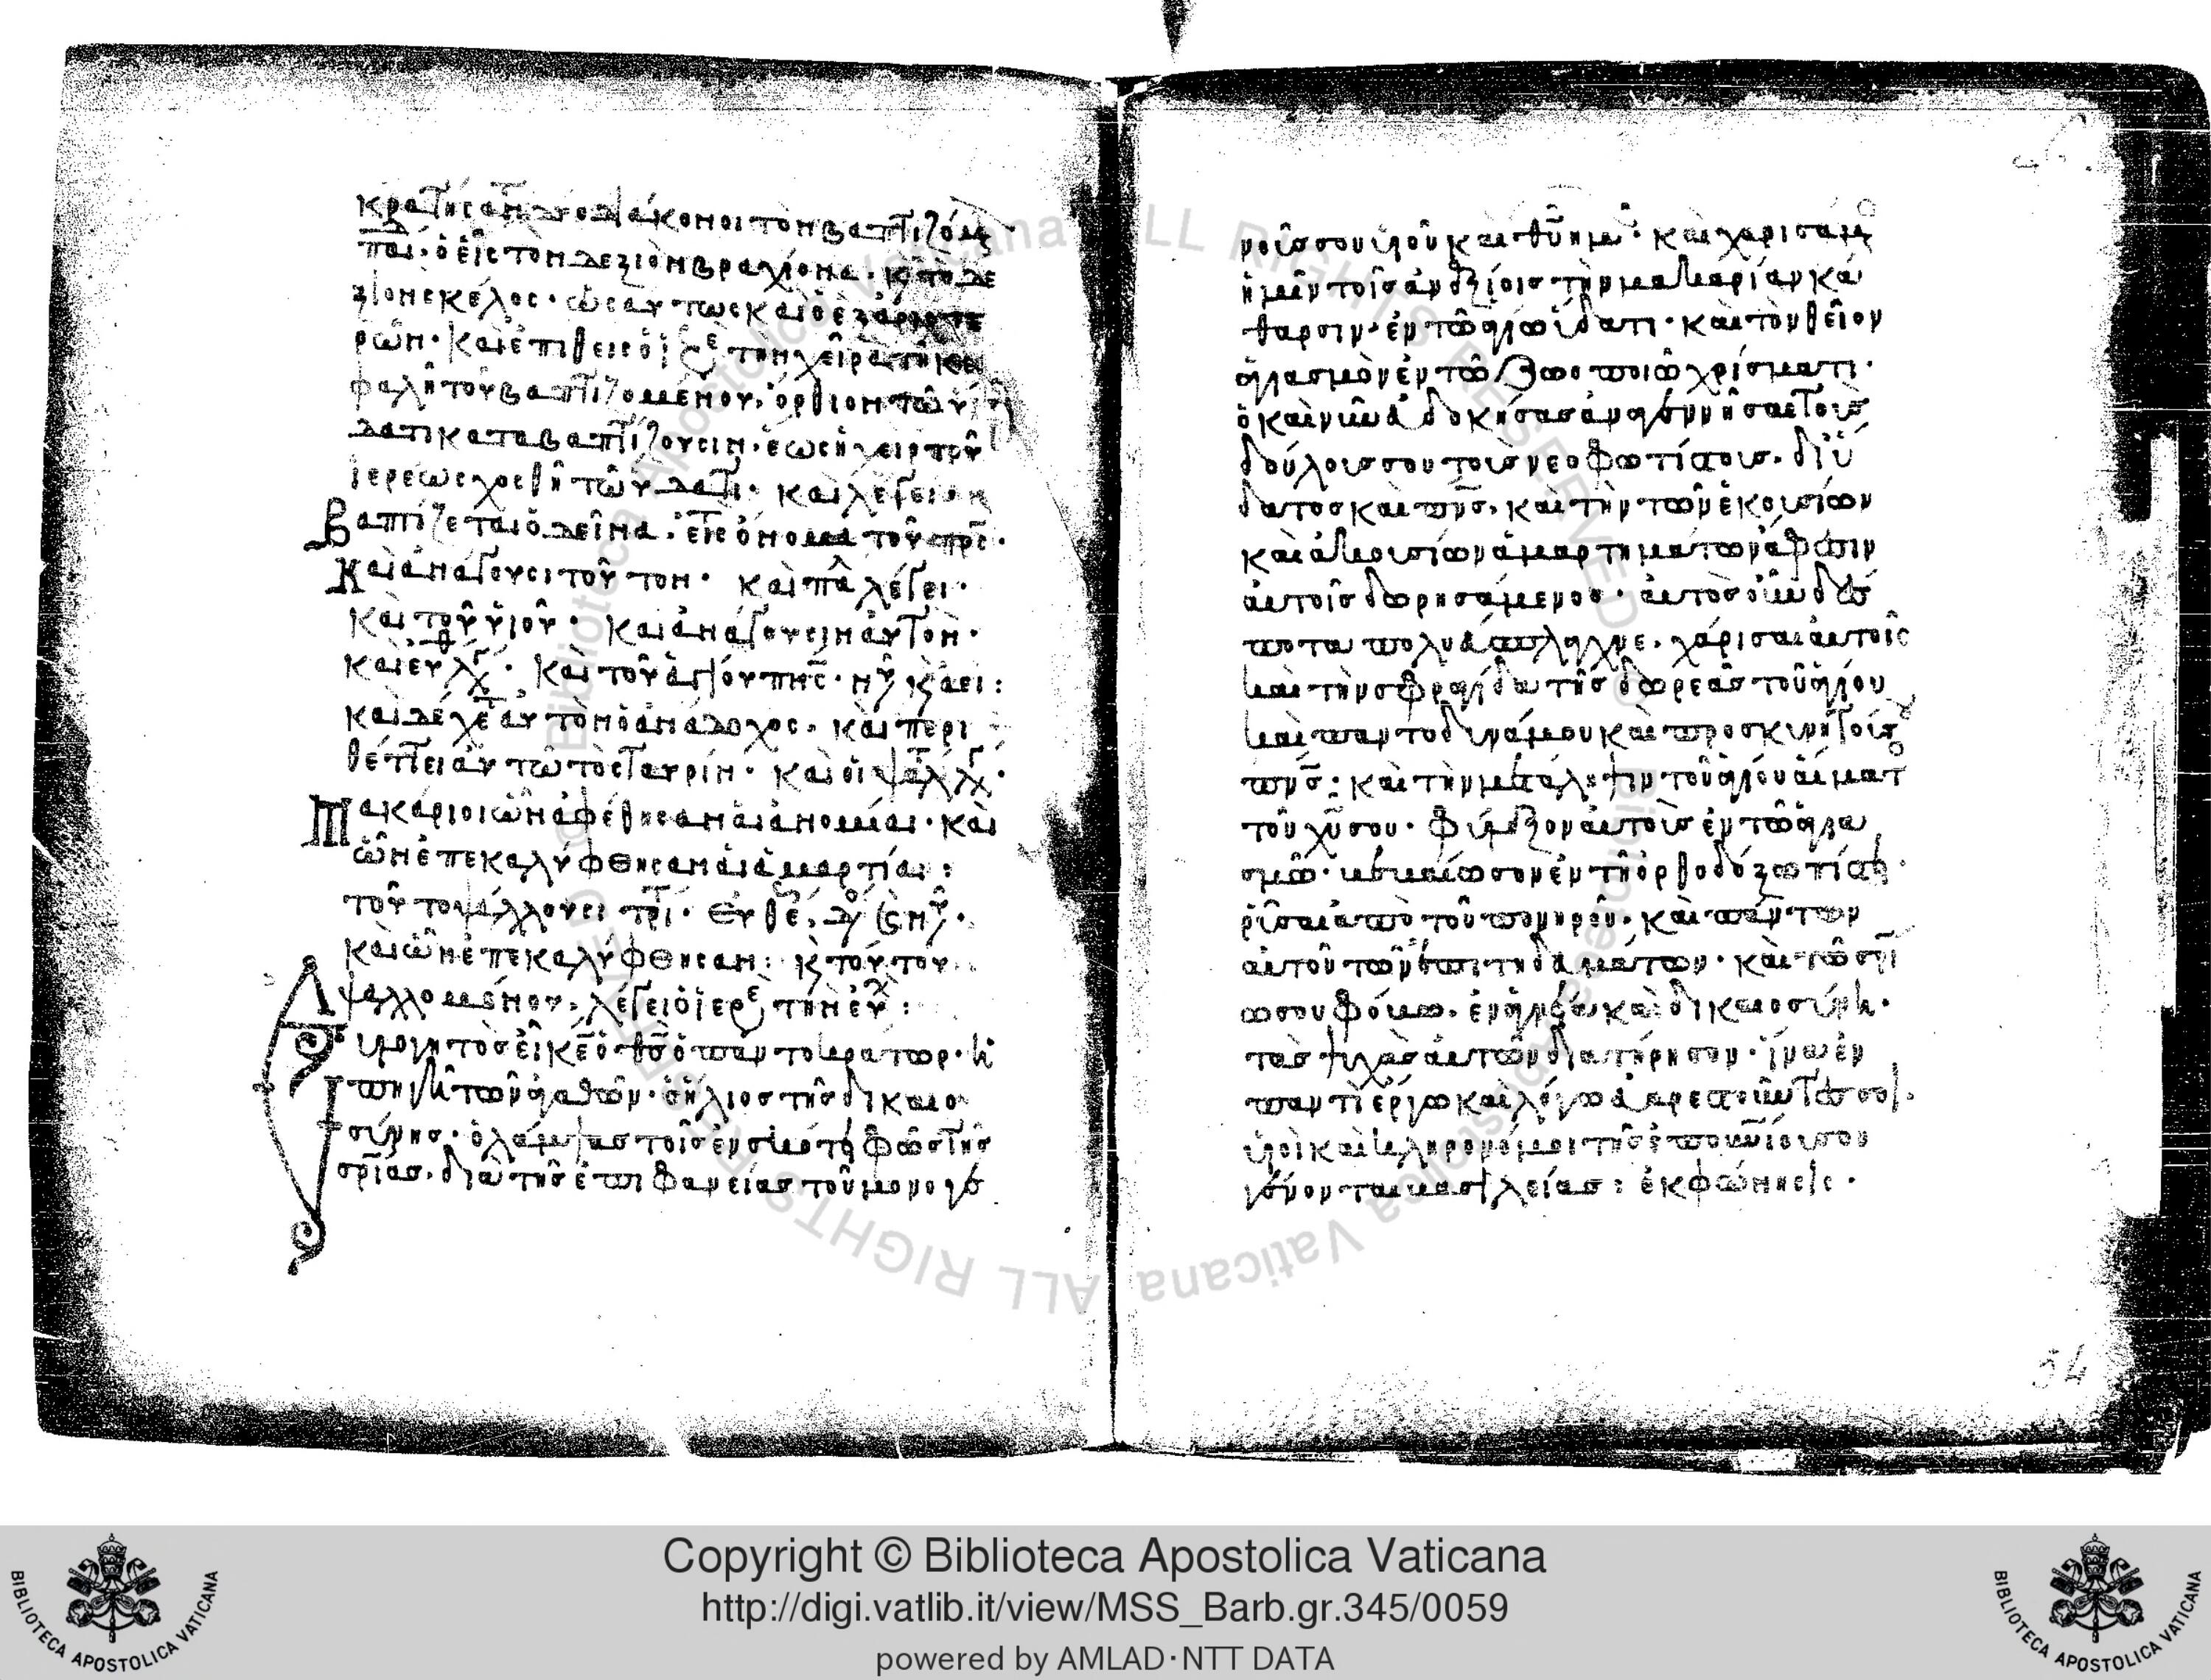 κρατήσαν οἱ διάκονοι τὸν βαπτιζόμε
ται· ὁ εἷς τὸν δεξιὸν βραχίονα· κ τὸ δε
ξιὸν σκέλος· ὡσαύτως καὶ ὁ ἐξ ἀριστε
ρῶν· καὶ ἐπιθεὶς ὁ ἱερε τὴν χεῖρα τῆ κε
φαλῆ τοῦ βαπτιζομένου, ὄρθιον τῶ ὕ
δατι καταβαπτίζουσιν· ἕως ἡ χεὶρ τοῦ
ἱερέως χωθῆ τῶ ὕδατι· καὶ λέγει
Βαπτίζεται ὁ δεῖνα· εἰς ὄνομα τοῦ πρς·
Καὶ ἀνάγουσι τοῦτον· καὶ πα λέγει·
καὶ τοῦ ὑιοῦ· καὶ ἀνάγουσιν αὐτὸν·
καὶ τοῦ ἁγίου πνς· νῦ κ ἀεί:
καὶ δέχετ αὐτὸν ὁ ἀνάδοχος· καὶ περι
θέττει αὐτῶ τὸ σταυρὶν· καὶ οἱ ψάλτ
Μακάριοι ὧν ἀφέθησαν αἱ ἀνομίαι· καὶ
ὧν ἐπεκαλύφθησαν αἱ ἁμαρτίαι:
τοῦτο ψάλλουσι τρι· Εὐθε, δο κ νυ·
καὶ ὧν ἐπεκαλύφθησαν: κ τούτου
ψαλλομένου, λέγει ὁ ἱερε τὴν εὐχ:
Εὐλογητὸς εἶ κε ὁ θς ὁ παντοκράτωρ· ἡ
πηγὴ τῶν ἀγαθῶν· ὁ ἥλιος τῆς δικαιο
σύνης· ὁ λάμψας τοῖς ἐν σκότει φῶς τῆς
σρίας· διὰ τῆς ἐπιφανείας τοῦ μονογε
νοῦς σου υἱοῦ καὶ θυ ἡμῶ· καὶ χαρισάμε
ἡμῖν τοῖς ἀναξίοις τὴν μακαρίαν κά
θαρσιν· ἐν τῶ ἁγίω ὕδατι· καὶ τὸν θεῖον
ἁγιασμὸν ἐν τῶ ζωοποιῶ χρίσματι·
ὁ καὶ νῦν εὐδοκήσας ἀναγεννῆσαι τοὺς
δούλους σου τοὺς νεοφωτίστους· δι ὕ
δατος καὶ πνς· καὶ τὴν τῶν ἑκουσίων
καὶ ἀκουσίων ἁμαρτημάτων ἄφεσιν
αὐτοῖς δωρησάμενος· αὐτὸς οὖν δέσ
ποτα πολυεύσπλαγχνε· χάρισαι αὐτοῖς
καὶ τὴν σφραγίδα τῆς δωρεᾶς τοῦ ἁγίου
καὶ παντοδυνάμου καὶ προσκυνητοῦ σου
πνς· καὶ τὴν μετάληψιν τοῦ ἁγίου αἵματος
τοῦ χυ σου· φύλαξον αὐτοὺς ἐν τῶ ἁγια
σμῶ· βεβαίωσον ἐν τῆ ὀρθοδόξω πίστει·
ῥῦσαι ἀπὸ τοῦ πονηροῦ· καὶ πάντων
αὐτοῦ τῶν ἐπιτηδευμάτων· καὶ τῶ σρι
ω σου φόβω· ἐν ἁγνεία καὶ δικαιοσύνη·
τὰς ψυχὰς αὐτῶν διατήρησον· ἵνα ἐν
παντὶ ἔργω καὶ λόγω εὐαρεστοῦντές σοι·
υἱοὶ καὶ κληρονόμοι τῆς ἐπουνίου σου
γένονται βασιλείας: ἐκφώνησις·
54
Copyright © Biblioteca Apostolica Vaticana
http://digi.vatlib.it/view/MSS_Barb.gr.345/0059
powered by AMLAD·NTT DATA